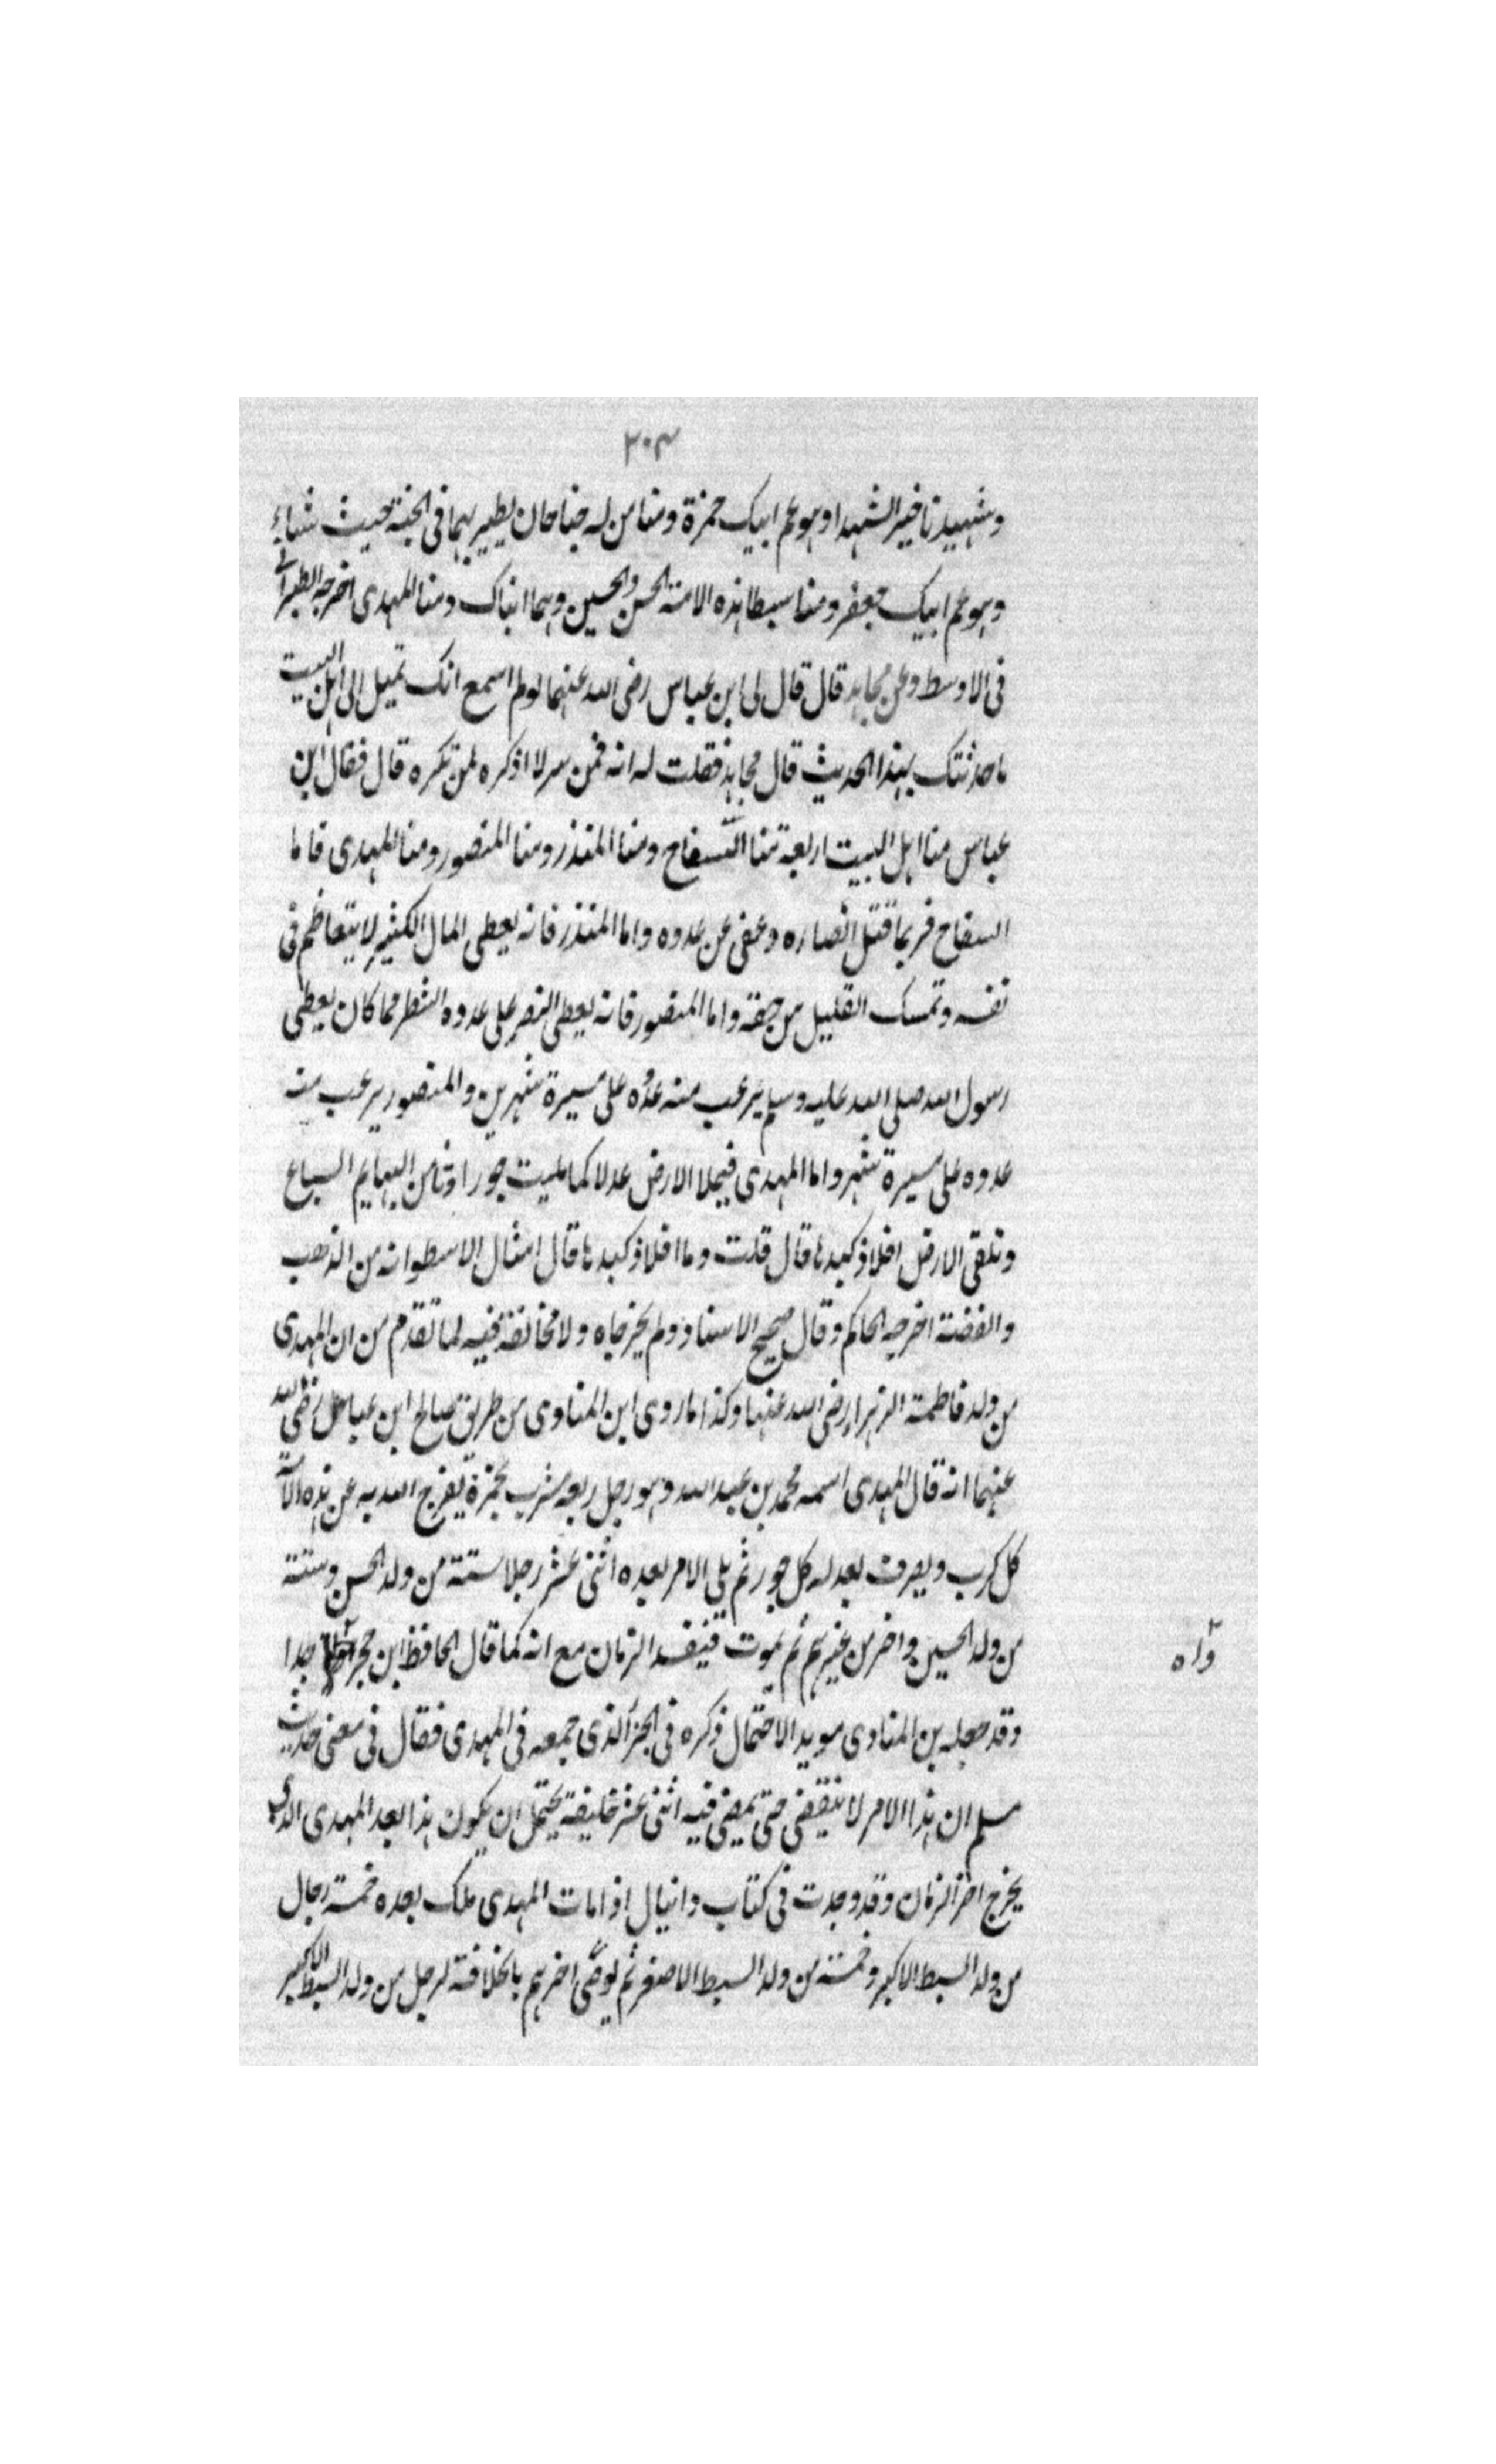 ٣٠٣
وشهيدنا خير الشهدا وهو عم ابيك حمزة ومنا من له جناحان يطير بهما في الجنة حيث شاء
وهو عم ابيك جعفر ومنا سبطا هذه الامة الحسن والحسين وهما ابناك ومنا المهدى اخرجه الطبراني
فى الاوسط وعن مجاهد قال قال لى ابن عباس رضى الله عنهما لو لم اسمع انك تميل الى اهل البيت
ما حدثتك بهذا الحديث قال مجاهد فقلت له انه فمن سر لا اذكره لمن تكره قال فقال ابن
عباس منا اهل البيت اربعة منا السفاح ومنا المنذر ومنا المنصور ومنا المهدى فاما
السفاح فربما قتل انصاره وعفى عن عدوه واما المنذر فانه يعطى المال الكثير لا يتعاظم فى
نفسه وتمسك القليل من حقه واما المنصور فانه يعطى النصر على عدوه الشطر مما كان يعطى
رسول الله صلى الله عليه وسلم يرعب منه عدوه على مسيرة شهرين والمنصور يرعب منه
عدوه على مسيرة شهر واما المهدى فيملا الارض عدلا كما مليت جورا وتامن البهايم السباع
وتلقى الارض افلاذ كبدها قال قلت وما افلاذ كبدها قال امثال الاسطوانه من الذهب
والفضة اخرجه الحاكم وقال صحيح الاسناد ولم يخرجاه ولا مخالفة فيه لما تقدم من ان المهدى
من ولد فاطمة الزهراء رضى الله عنها وكذا ما روى ابن المناوى من طريق صالح ابن عباس رضى الله
عنهما انه قال المهدى اسمه محمد بن عبد الله وهو رجل ربعة مشرب بحمرة يفرج الله به عن هذه الامة
كل كرب ويصرف بعدله كل جور ثم يلى الامر بعده اثنى عشر رجلا ستة من ولد الحسن وستة
من ولد الحسين واخر من غيرهم ثم يموت فيفسد الزمان مع انه كما قال الحافظ ابن حجر جدا
واه
وقد جعله بن المناوى مويد الاحتمال ذكره فى الجزء الذى جمعه فى المهدى فقال فى معنى حديث
مسلم ان هذا الامر لا ينقضى حتى يمضى فيه اثنى عشر خليفة يحتمل ان يكون هذا بعد المهدى الذى
يخرج اخر الزمان وقد وجدت فى كتاب دانيال اذا مات المهدى ملك بعده خمسة رجال
من ولد السبط الاكبر وخمسة من ولد السبط الاصغر ثم يوصى اخرهم بالخلافة لرجل من ولد السبط الاكبر